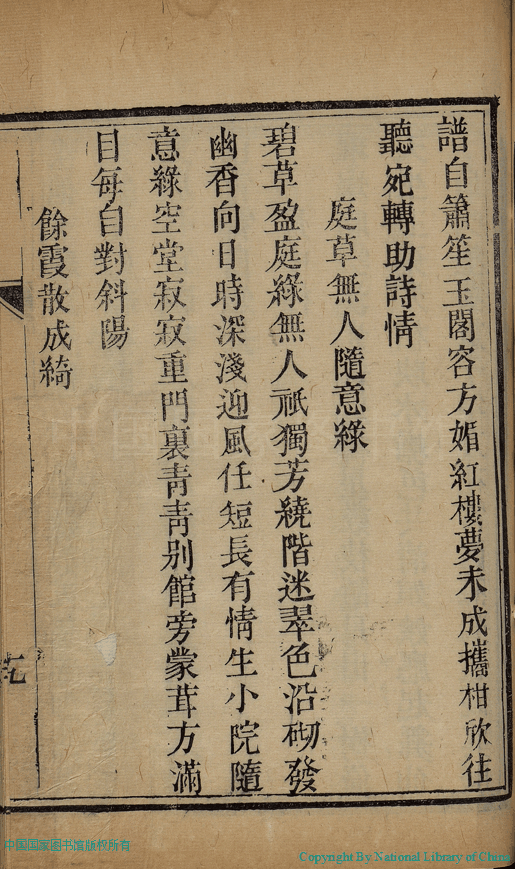 譜自簫笙玉閣容方婿紅樓夢未成攜柑欣往
聽宛轉助詩情
庭草無人隨意綠
碧草盈庭綠無人祇獨芳繞階迷翠色沿砌發
幽香向日時深淺迎風任短長有情生小院隨
意綠空堂寂寂重門裏青青别館旁蒙茸方滿
目每自對斜陽
餘霞散成綺
中国国家图书馆版权所有
Copyright By National Library of China